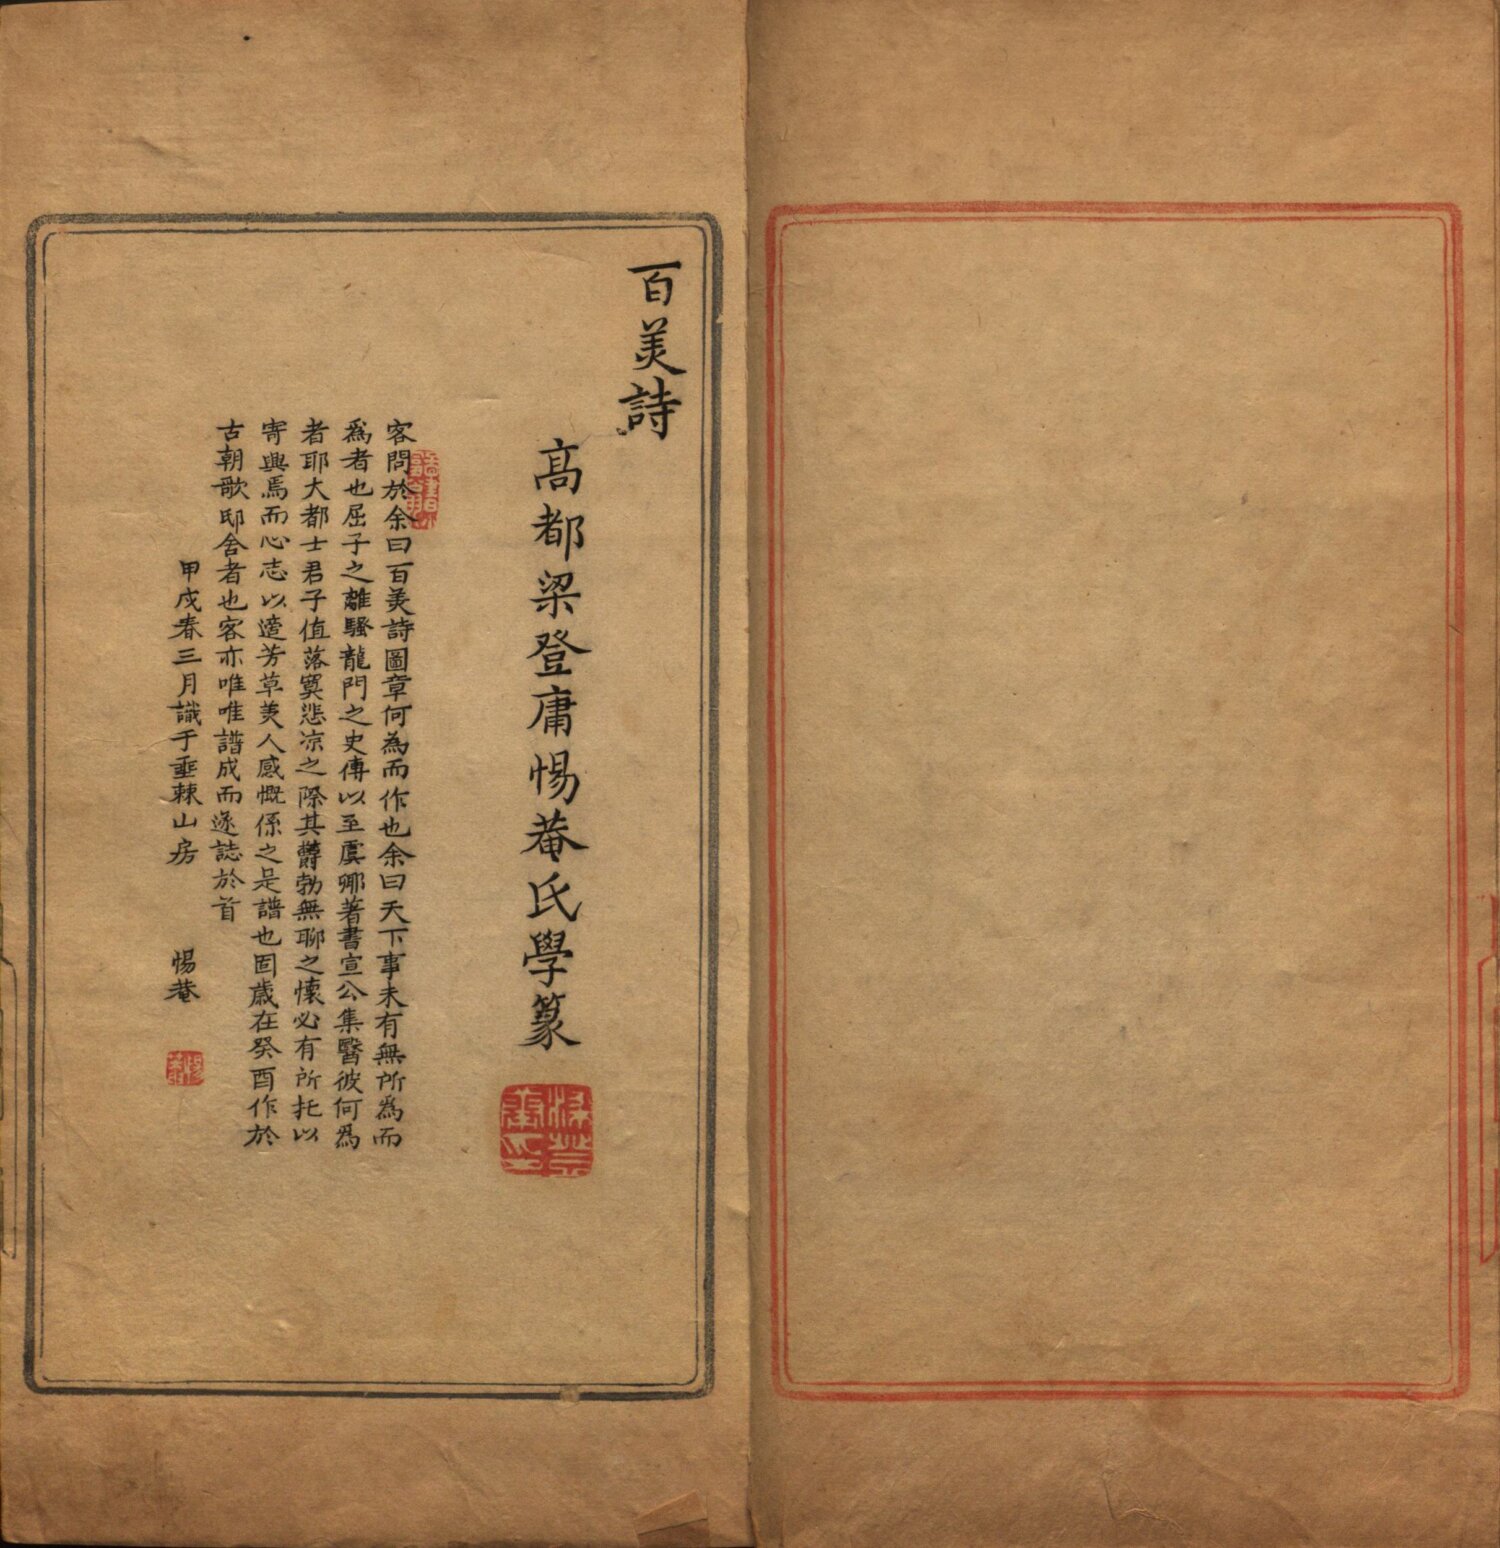 百美詩
高都梁登庸惕菴氏學篆
客問於余曰百美詩圖章何為而作也余曰天下事未有無所為而
爲者也屈子之離騷龍門之史傳以至虞卿著書宣公集醫彼何爲
者耶大都士君子值落寞悲凉之際其欝勃無聊之懷必有所托以
寄興焉而心志以適芳草美人感慨係之是譜也固歲在癸酉作於
古朝歌邸舍者也客亦唯唯譜成而遂誌於首
甲戌春三月識于垂棘山房
惕菴